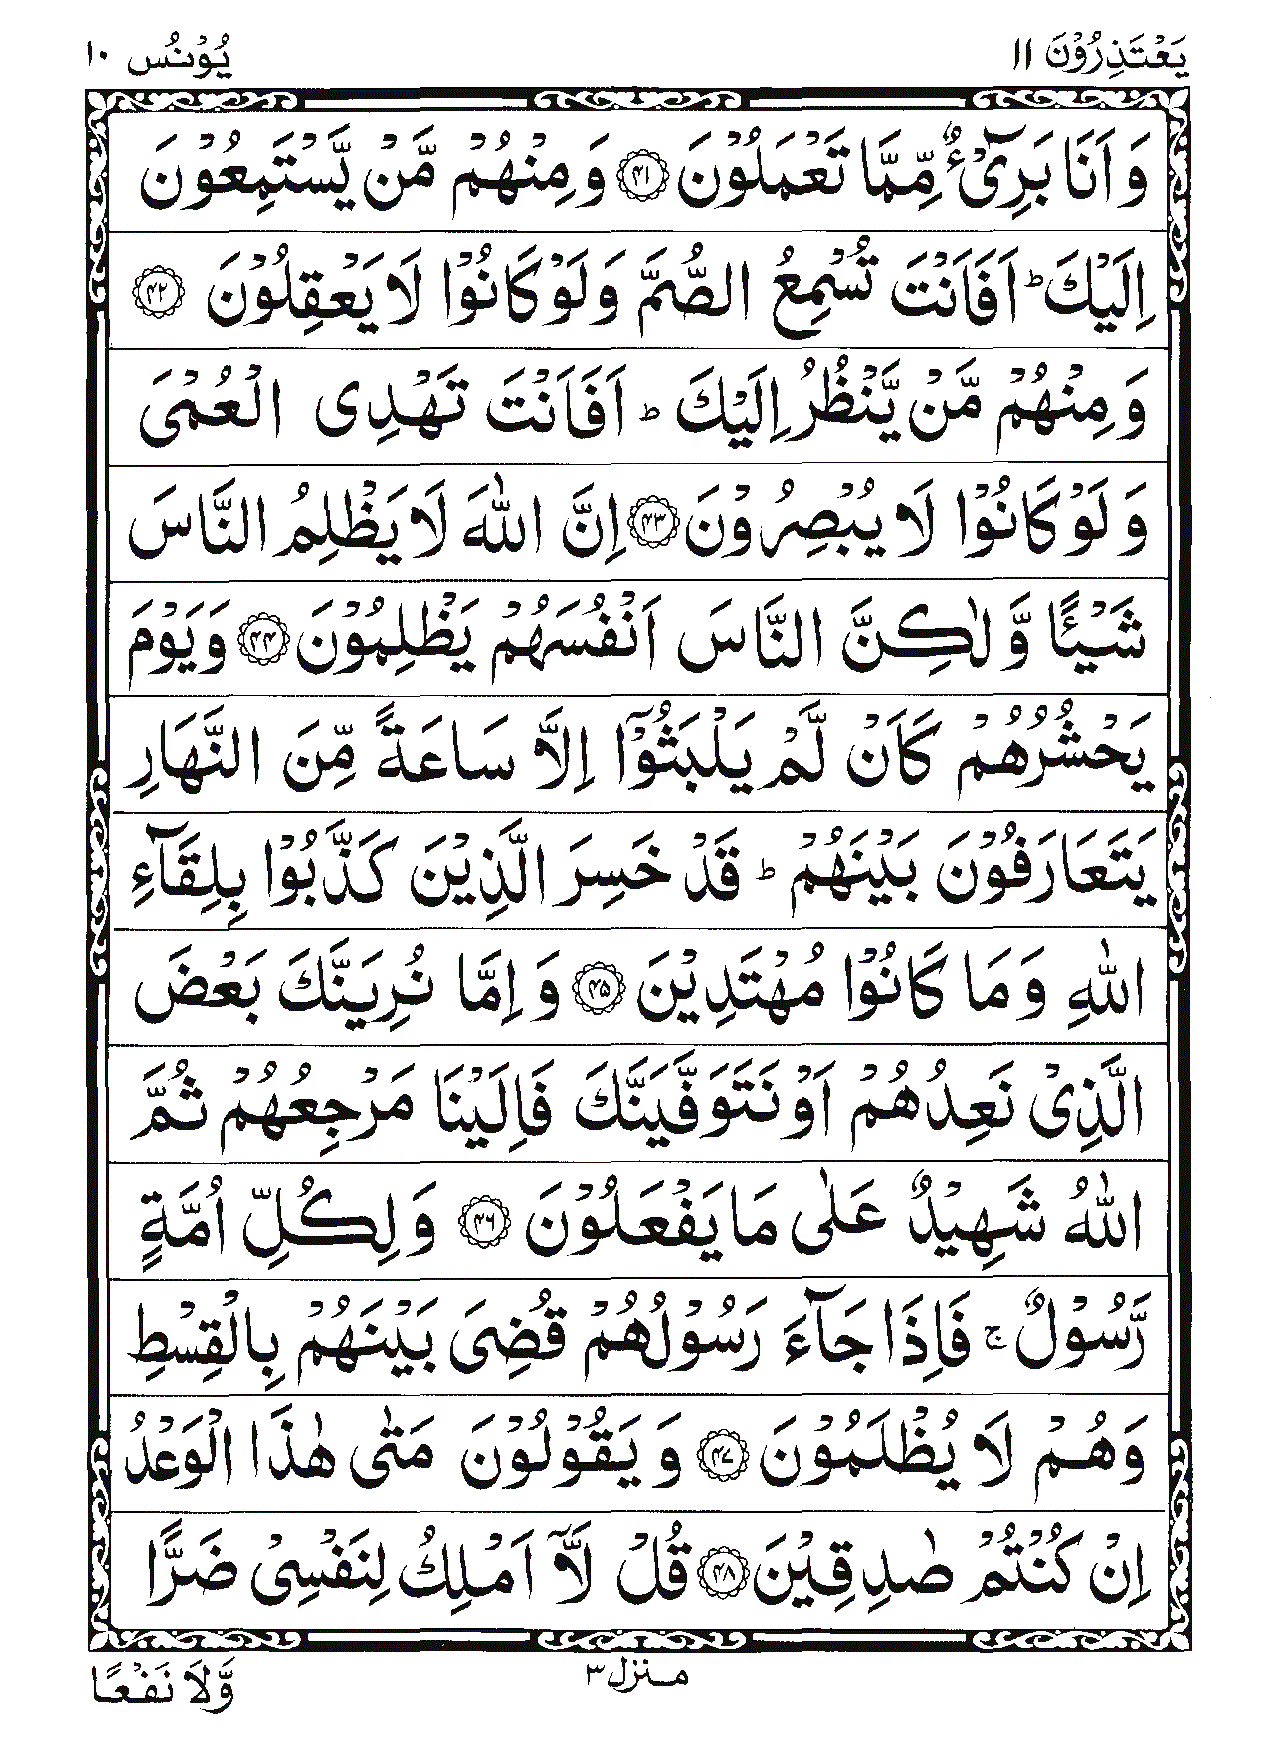 يَعْتَذِرُوْنَ ١١
يُوْنُس ١٠
وَاَنَا بَرِیْٓءٌ مِّمَّا تَعْمَلُوْنَ ﴿۴۱﴾ وَمِنْهُمْ مَّنْ يَّسْتَمِعُوْنَ
اِلَيْكَ ؕ اَفَاَنْتَ تُسْمِعُ الصُّمَّ وَلَوْ كَانُوْا لَا يَعْقِلُوْنَ ﴿۴۲﴾
وَمِنْهُمْ مَّنْ يَّنْظُرُ اِلَيْكَ ؕ اَفَاَنْتَ تَهْدِی الْعُمْیَ
وَلَوْ كَانُوْا لَا يُبْصِرُوْنَ ﴿۴۳﴾ اِنَّ اللّٰهَ لَا يَظْلِمُ النَّاسَ
شَيْـًٔا وَّلٰكِنَّ النَّاسَ اَنْفُسَهُمْ يَظْلِمُوْنَ ﴿۴۴﴾ وَيَوْمَ
يَحْشُرُهُمْ كَاَنْ لَّمْ يَلْبَثُوْۤا اِلَّا سَاعَةً مِّنَ النَّهَارِ
يَتَعَارَفُوْنَ بَيْنَهُمْ ؕ قَدْ خَسِرَ الَّذِيْنَ كَذَّبُوْا بِلِقَآءِ
اللّٰهِ وَمَا كَانُوْا مُهْتَدِيْنَ ﴿۴۵﴾ وَاِمَّا نُرِيَنَّكَ بَعْضَ
الَّذِیْ نَعِدُهُمْ اَوْ نَتَوَفَّيَنَّكَ فَاِلَيْنَا مَرْجِعُهُمْ ثُمَّ
اللّٰهُ شَهِيْدٌ عَلٰی مَا يَفْعَلُوْنَ ﴿۴۶﴾ وَلِكُلِّ اُمَّةٍ
رَّسُوْلٌ ۚ فَاِذَا جَآءَ رَسُوْلُهُمْ قُضِیَ بَيْنَهُمْ بِالْقِسْطِ
وَهُمْ لَا يُظْلَمُوْنَ ﴿۴۷﴾ وَيَقُوْلُوْنَ مَتٰی هٰذَا الْوَعْدُ
اِنْ كُنْتُمْ صٰدِقِيْنَ ﴿۴۸﴾ قُلْ لَّاۤ اَمْلِكُ لِنَفْسِیْ ضَرًّا
منزل ٣
وَّلَا نَفْعًا